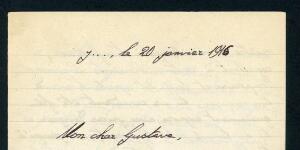 J..., le 20 janvier 1916
Mon cher Gustave,